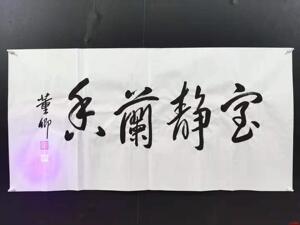 室静蘭香
董卿